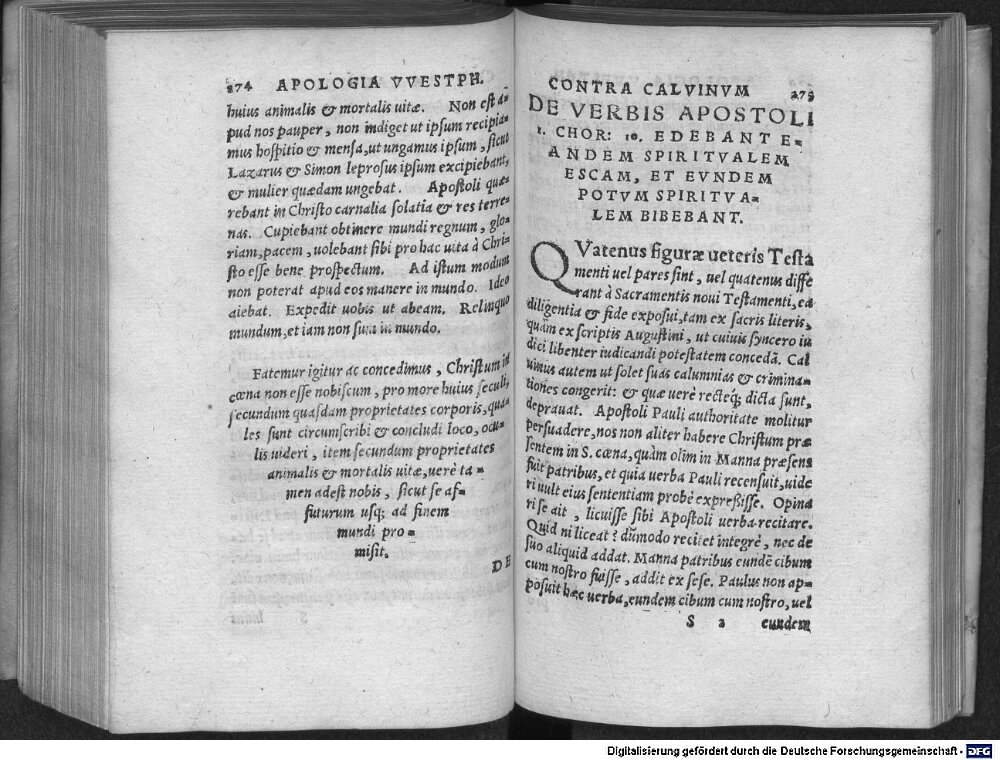 274 APOLOGIA VVESTPH.
huius animalis & mortalis uitæ. Non est a-
pud nos pauper, non indiget ut ipsum recipia-
mus hospitio & mensa, ut ungamus ipsum, sicut
Lazarus & Simon leprosus ipsum excipiebant,
& mulier quædam ungebat. Apostoli quæ-
rebant in Christo carnalia solatia & res terre-
nas. Cupiebant obtinere mundi regnum, glo-
riam, pacem, uolebant sibi pro hac uita à Chri-
sto esse bene prospectum. Ad istum modum
non poterat apud eos manere in mundo. Ideo
aiebat. Expedit uobis ut abeam. Relinquo
mundum, et iam non sum in mundo.
Fatemur igitur ac concedimus, Christum in
cœna non esse nobiscum, pro more huius seculi,
secundum quasdam proprietates corporis, qua-
les sunt circumscribi & concludi loco, ocu-
lis uideri, item secundum proprietates
animalis & mortalis uitæ, uerè ta-
men adest nobis, sicut se af-
futurum usq; ad finem
mundi pro-
misit.
DE
CONTRA CALVINVM 275
DE VERBIS APOSTOLI
1. CHOR: 10. EDEBANT E-
ANDEM SPIRITVALEM
ESCAM, ET EVNDEM
POTVM SPIRITVA-
LEM BIBEBANT.
QVatenus figuræ ueteris Testa
menti uel pares sint, uel quatenus diffe
rant à Sacramentis noui Testamenti, ea
diligentia & fide exposui, tam ex sacris literis,
quàm ex scriptis Augustini, ut cuiuis syncero iu
dici libenter iudicandi potestatem concedã. Cal
uinus autem ut solet suas calumnias & crimina-
tiones congerit: & quæ uerè recteq; dicta sunt,
deprauat. Apostoli Pauli authoritate molitur
persuadere, nos non aliter habere Christum præ
sentem in S. cœna, quàm olim in Manna præsens
fuit patribus, et quia uerba Pauli recensuit, uide
ri uult eius sententiam probè expreßisse. Opina
ri se ait, licuisse sibi Apostoli uerba recitare.
Quid ni liceat? dũmodo recitet integrè, nec de
suo aliquid addat. Manna patribus eundẽ cibum
cum nostro fuisse, addit ex sese. Paulus non ap-
posuit hæc uerba, eundem cibum cum nostro, uel
S 2 eundem
Digitalisierung gefördert durch die Deutsche Forschungsgemeinschaft - DFG